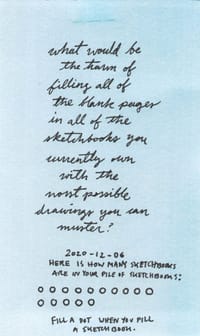 what would be
the harm of
filling all of
the blank pages
in all of the
sketchbooks you
currently own
with the
worst possible
drawings you can
muster?
2020-12-06
HERE IS HOW MANY SKETCHBOOKS
ARE IN YOUR PILE OF SKETCHBOOKS:
FILL A DOT WHEN YOU FILL
A SKETCHBOOK.